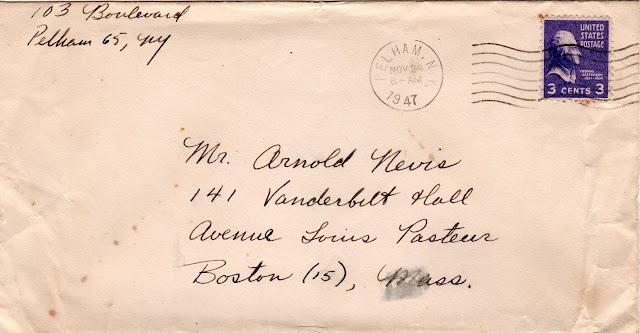 103 Boulevard
Pelham 65, NY
PELHAM, N.Y.
NOV 24
8 - AM
1947
UNITED
STATES
POSTAGE
3 CENTS 3
Mr. Arnold Nevis
141 Vanderbilt Hall
Avenue Louis Pasteur
Boston (15), Mass.